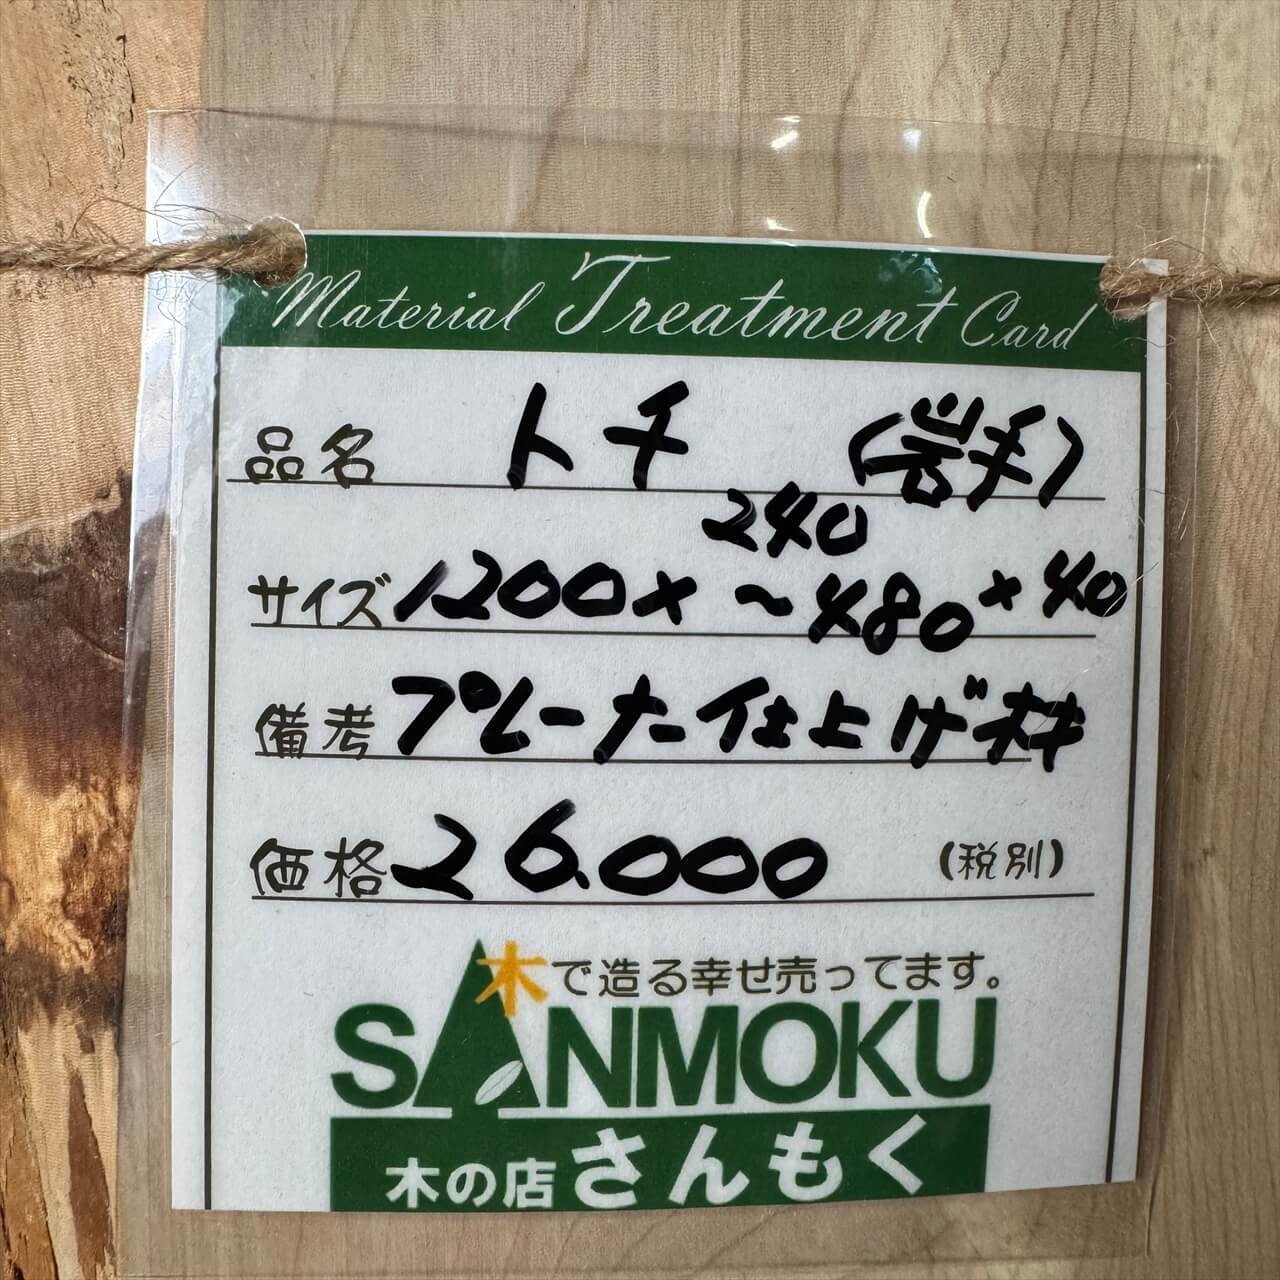 Material Treatment Card
品名 トチ (岩手)
サイズ 1200× 240~480 ×40
備考 プレーナー仕上げ材
価格 26.000 (税別)
木で造る幸せ売ってます。
SANMOKU
木の店 さんもく